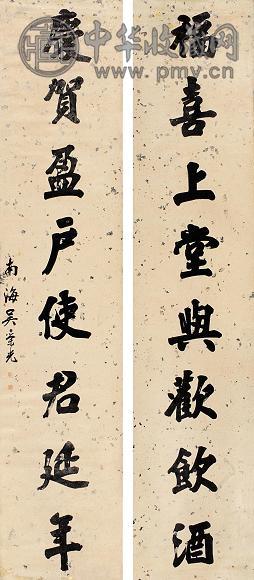 福喜上堂與歡飲酒
慶賀盈戶使君延年
南海吳榮光
中华收藏网
www.pmyv.cn